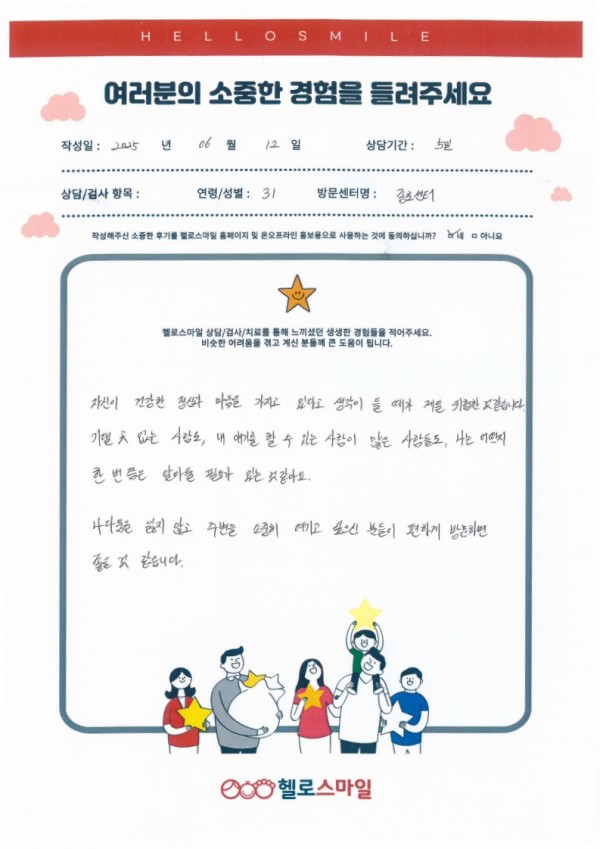 HELLOSMILE
여러분의 소중한 경험을 들려주세요
작성일 : 2025 년 06 월 12 일 상담기간 :
상담/검사 항목 : 연령/성별 : 31 방문센터명 : 종로센터
작성해주신 소중한 후기를 헬로스마일 홈페이지 및 온오프라인 홍보용으로 사용하는 것에 동의하십니까? ㅁ네 ㅁ아니요
헬로스마일 상담/검사/치료를 통해 느끼셨던 생생한 경험들을 적어주세요.
비슷한 어려움을 겪고 계신 분들께 큰 도움이 됩니다.
자신이 건강한 정신과 마음을 가지고 있다고 생각이 들 때가 제일 위험한 것같습니다.
기댈 곳 없는 사람도, 내 얘기를 할 수 있는 사람이 많은 사람들도, 나는 어떤지
한 번 쯤은 알아둘 필요가 있는 것같아요.
나다움을 잃지 않고 주변을 소중히 여기고 싶으신 분들이 편하게 방문하면
좋을 것 같습니다.
헬로스마일